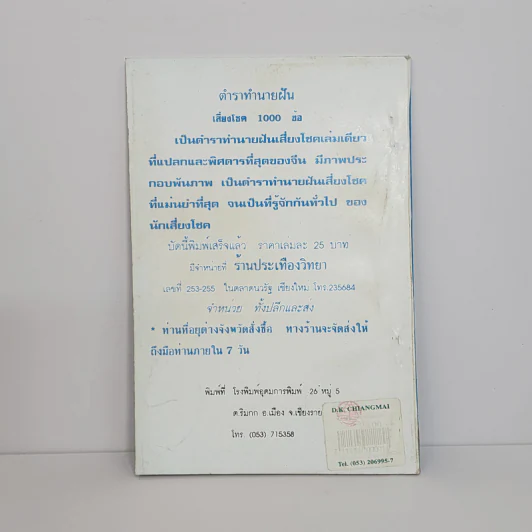 ตำราทำนายฝัน
เสี่ยงโชค 1000 ข้อ
เป็นตำราทำนายฝันเสี่ยงโชคเล่มเดียว
ที่แปลกและพิศดารที่สุดของจีน มีภาพประ
กอบพันภาพ เป็นตำราทำนายฝันเสี่ยงโชค
ที่แม่นยำที่สุด จนเป็นที่รู้จักกันทั่วไป ของ
นักเสี่ยงโชค
บัดนี้พิมพ์เสร็จแล้ว ราคาเล่มละ 25 บาท
มีจำหน่ายที่ ร้านประเทืองวิทยา
เลขที่ 253-255 ในตลาดนวรัฐ เชียงใหม่ โทร.235684
จำหน่าย ทั้งปลีกและส่ง
* ท่านที่อยู่ต่างจังหวัดสั่งซื้อ ทางร้านจะจัดส่งให้
ถึงมือท่านภายใน 7 วัน
พิมพ์ที่ โรงพิมพ์อุดมการพิมพ์ 26 หมู่ 5
ต.ริมกก อ.เมือง จ.เชียงราย
โทร (053) 715358
D.K. CHIANGMAI
Tel. (053) 206995-7